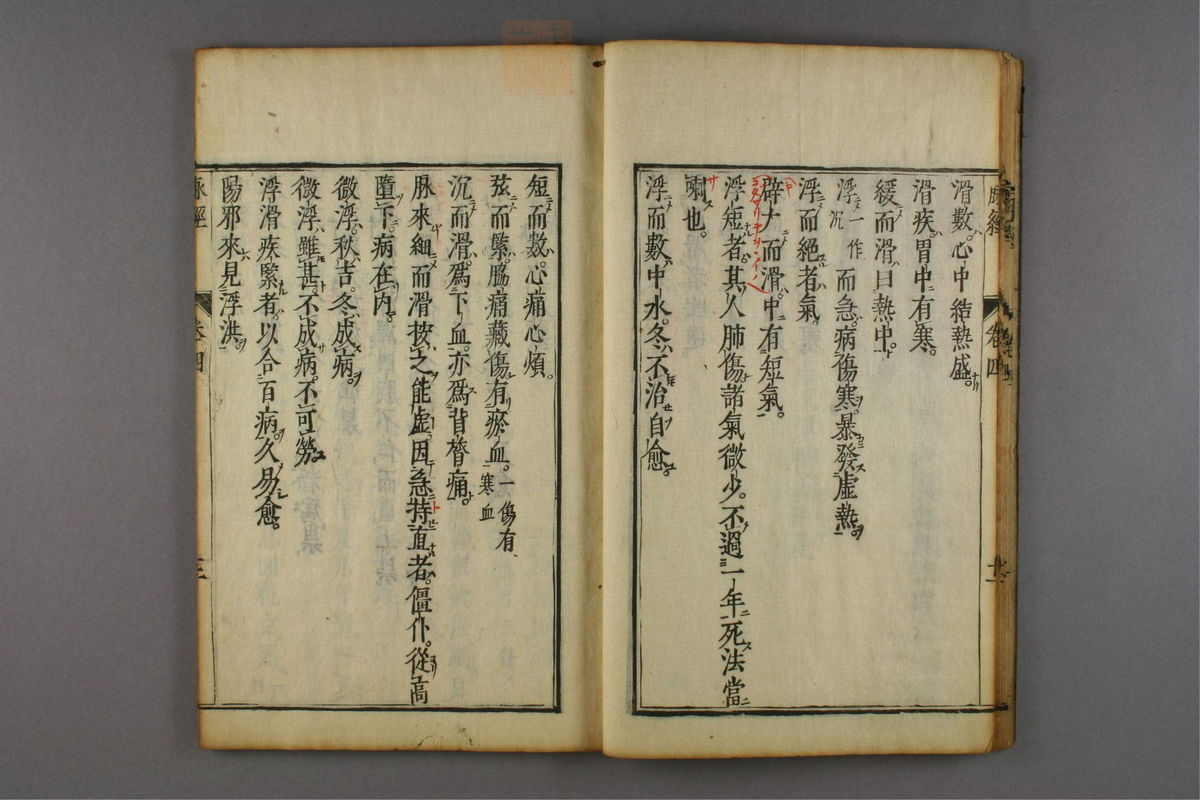 脉經 卷四
滑數。心中結熱盛。
滑疾。胃中有寒。
緩而滑。曰熱中。
浮一作沉而急。病傷寒。暴發虛熱。
浮而絕者氣。
辟大而滑。中有短氣。
浮短者。其人肺傷。諸氣微少。不過一年死。法當
嗽也。
浮而數。中水。冬不治自愈。
短而數。心痛心煩。
弦而緊。脇痛。藏傷有瘀血。一傷有寒血
沉而滑。爲下血。亦爲背膂痛。
脉來細而滑。按之能虛。因急持直者。僵仆。從高
墮下。病在内。
微浮。秋吉。冬成病。
微浮。雖甚不成病。不可勞。
浮滑疾緊者。以合百病。久易愈。
陽邪來。見浮洪。
脉經 卷四